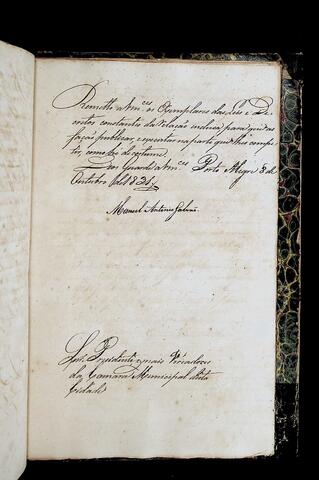 Remetto a Vm.ces os Exemplares das Leis e De-
cretos constantes da relação incluza, para que os
fação publicar, e executar na parte que lhes compe-
tir, como he de costume.
Deos Guarde a Vm.ces Porto Alegre 8 de
Outubro de 1831.
Manoel Antonio Galvão
Snr.s Presidente e mais Vereadores
da Camara Municipal desta
Cidade